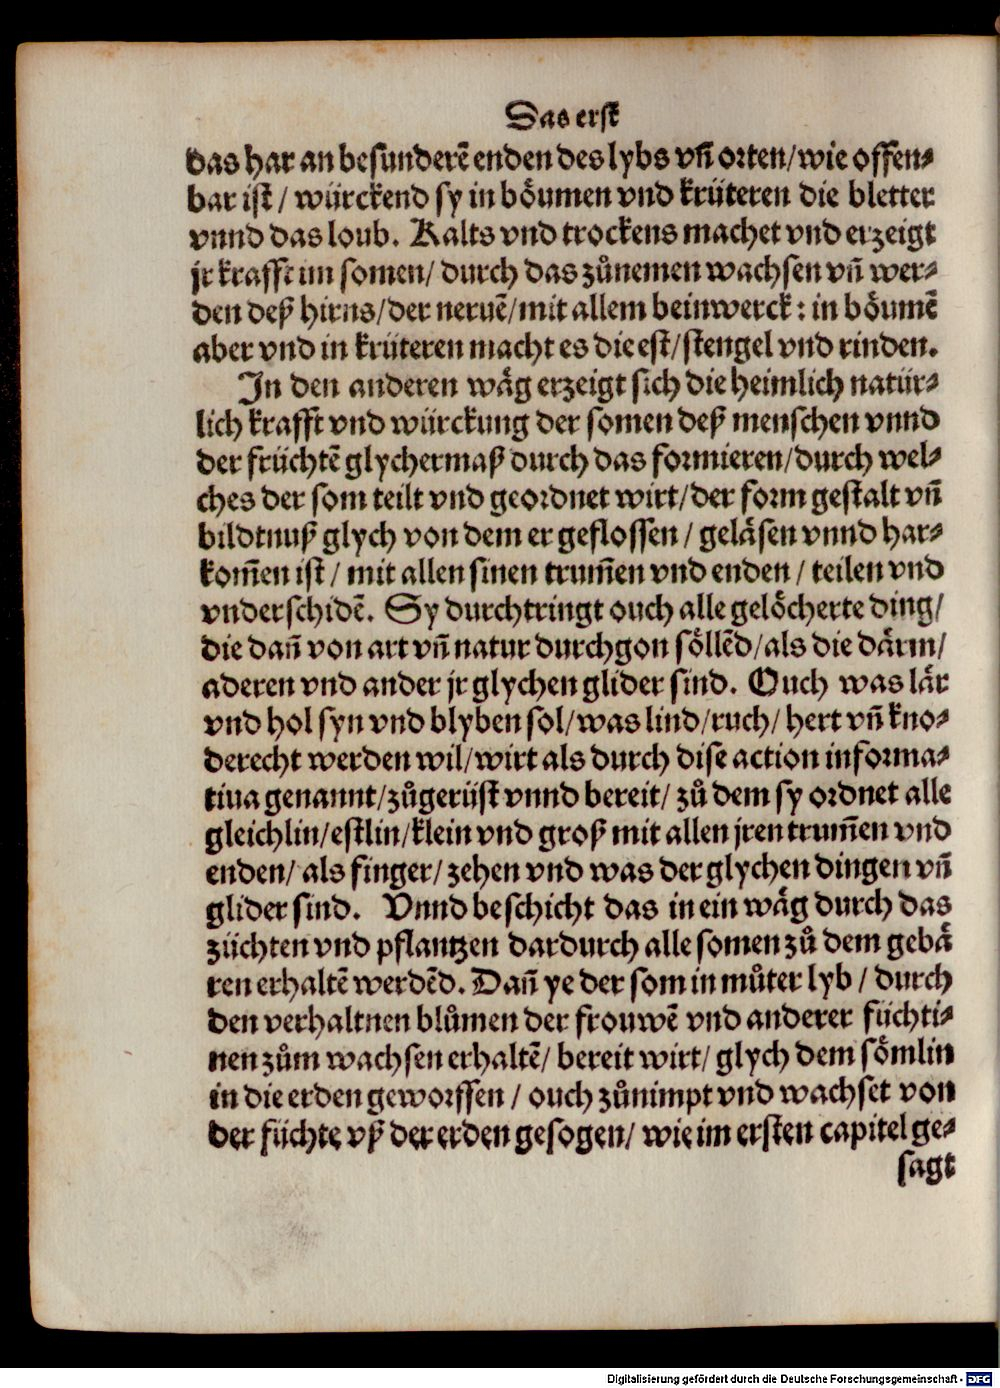 Das erst
das har an besunderē enden des lybs vñ orten/wie offen⸗
bar ist / würckend sy in böumen vnd krüteren die bletter
vnnd das loub. Kalts vnd trockens machet vnd erzeigt
jr krafft im somen/ durch das zůnemen wachsen vñ wer⸗
den deß hirns/der neruē/mit allem beinwerck: in böumē
aber vnd in krüteren macht es die est/stengel vnd rinden.
In den anderen wäg erzeigt sich die heimlich natür⸗
lich krafft vnd würckung der somen deß menschen vnnd
der früchtē glychermaß durch das formieren/durch wel⸗
ches der som teilt vnd geordnet wirt/der form gestalt vñ
bildtnuß glych von dem er geflossen / geläsen vnnd har⸗
kom̃en ist / mit allen sinen trum̃en vnd enden / teilen vnd
vnderschidē. Sy durchtringt ouch alle gelöcherte ding/
die dañ von art vñ natur durchgon söllēd/als die därm/
aderen vnd ander jr glychen glider sind. Ouch was lär
vnd hol syn vnd blyben sol/was lind/ruch/ hert vñ kno⸗
derecht werden wil/wirt als durch dise action informa⸗
tiua genannt/zůgerüst vnnd bereit/ zů dem sy ordnet alle
gleichlin/estlin/klein vnd groß mit allen jren trum̃en vnd
enden/ als finger/ zehen vnd was der glychen dingen vñ
glider sind. Vnnd beschicht das in ein wäg durch das
züchten vnd pflantzen dardurch alle somen zů dem gebä
ren erhaltē werdēd. Dañ ye der som in můter lyb / durch
den verhaltnen blůmen der frouwē vnd anderer füchti⸗
nen zům wachsen erhaltē/ bereit wirt/ glych dem sömlin
in die erden geworffen / ouch zůnimpt vnd wachset von
der füchte vß der erden gesogen/ wie im ersten capitel ge⸗
sagt
Digitalisierung gefördert durch die Deutsche Forschungsgemeinschaft - DFG